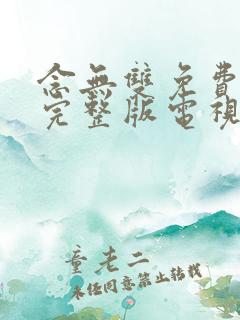 念無雙免費
完整版電視
童老二
未经同意禁止转载